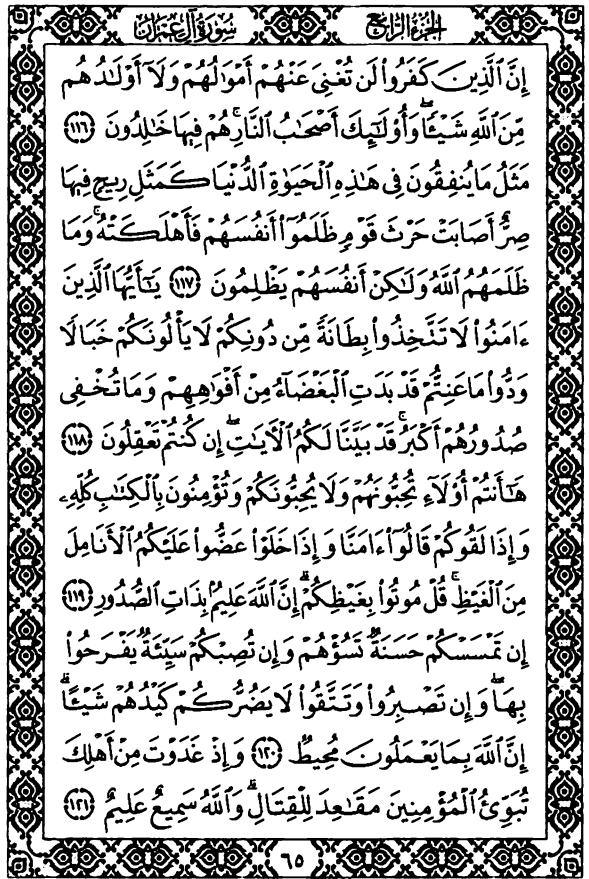 سُورَةُ آلِ عِمْرَان
الجُزْءُ الرَّابِعُ
إِنَّ ٱلَّذِينَ كَفَرُوا۟ لَن تُغْنِىَ عَنْهُمْ أَمْوَٰلُهُمْ وَلَآ أَوْلَـٰدُهُم
مِّنَ ٱللَّهِ شَيْـًٔا ۖ وَأُو۟لَـٰٓئِكَ أَصْحَـٰبُ ٱلنَّارِ ۚ هُمْ فِيهَا خَـٰلِدُونَ ١١٦
مَثَلُ مَا يُنفِقُونَ فِى هَـٰذِهِ ٱلْحَيَوٰةِ ٱلدُّنْيَا كَمَثَلِ رِيحٍ فِيهَا
صِرٌّ أَصَابَتْ حَرْثَ قَوْمٍ ظَلَمُوٓا۟ أَنفُسَهُمْ فَأَهْلَكَتْهُ ۚ وَمَا
ظَلَمَهُمُ ٱللَّهُ وَلَـٰكِنْ أَنفُسَهُمْ يَظْلِمُونَ ١١٧ يَـٰٓأَيُّهَا ٱلَّذِينَ
ءَامَنُوا۟ لَا تَتَّخِذُوا۟ بِطَانَةً مِّن دُونِكُمْ لَا يَأْلُونَكُمْ خَبَالًا
وَدُّوا۟ مَا عَنِتُّمْ قَدْ بَدَتِ ٱلْبَغْضَآءُ مِنْ أَفْوَٰهِهِمْ وَمَا تُخْفِى
صُدُورُهُمْ أَكْبَرُ ۚ قَدْ بَيَّنَّا لَكُمُ ٱلْـَٔايَـٰتِ ۖ إِن كُنتُمْ تَعْقِلُونَ ١١٨
هَـٰٓأَنتُمْ أُو۟لَآءِ تُحِبُّونَهُمْ وَلَا يُحِبُّونَكُمْ وَتُؤْمِنُونَ بِٱلْكِتَـٰبِ كُلِّهِۦ
وَإِذَا لَقُوكُمْ قَالُوٓا۟ ءَامَنَّا وَإِذَا خَلَوْا۟ عَضُّوا۟ عَلَيْكُمُ ٱلْأَنَامِلَ
مِنَ ٱلْغَيْظِ ۚ قُلْ مُوتُوا۟ بِغَيْظِكُمْ ۗ إِنَّ ٱللَّهَ عَلِيمٌۢ بِذَاتِ ٱلصُّدُورِ ١١٩
إِن تَمْسَسْكُمْ حَسَنَةٌ تَسُؤْهُمْ وَإِن تُصِبْكُمْ سَيِّئَةٌ يَفْرَحُوا۟
بِهَا ۖ وَإِن تَصْبِرُوا۟ وَتَتَّقُوا۟ لَا يَضُرُّكُمْ كَيْدُهُمْ شَيْـًٔا ۗ
إِنَّ ٱللَّهَ بِمَا يَعْمَلُونَ مُحِيطٌ ١٢٠ وَإِذْ غَدَوْتَ مِنْ أَهْلِكَ
تُبَوِّئُ ٱلْمُؤْمِنِينَ مَقَـٰعِدَ لِلْقِتَالِ ۗ وَٱللَّهُ سَمِيعٌ عَلِيمٌ ١٢١
٦٥